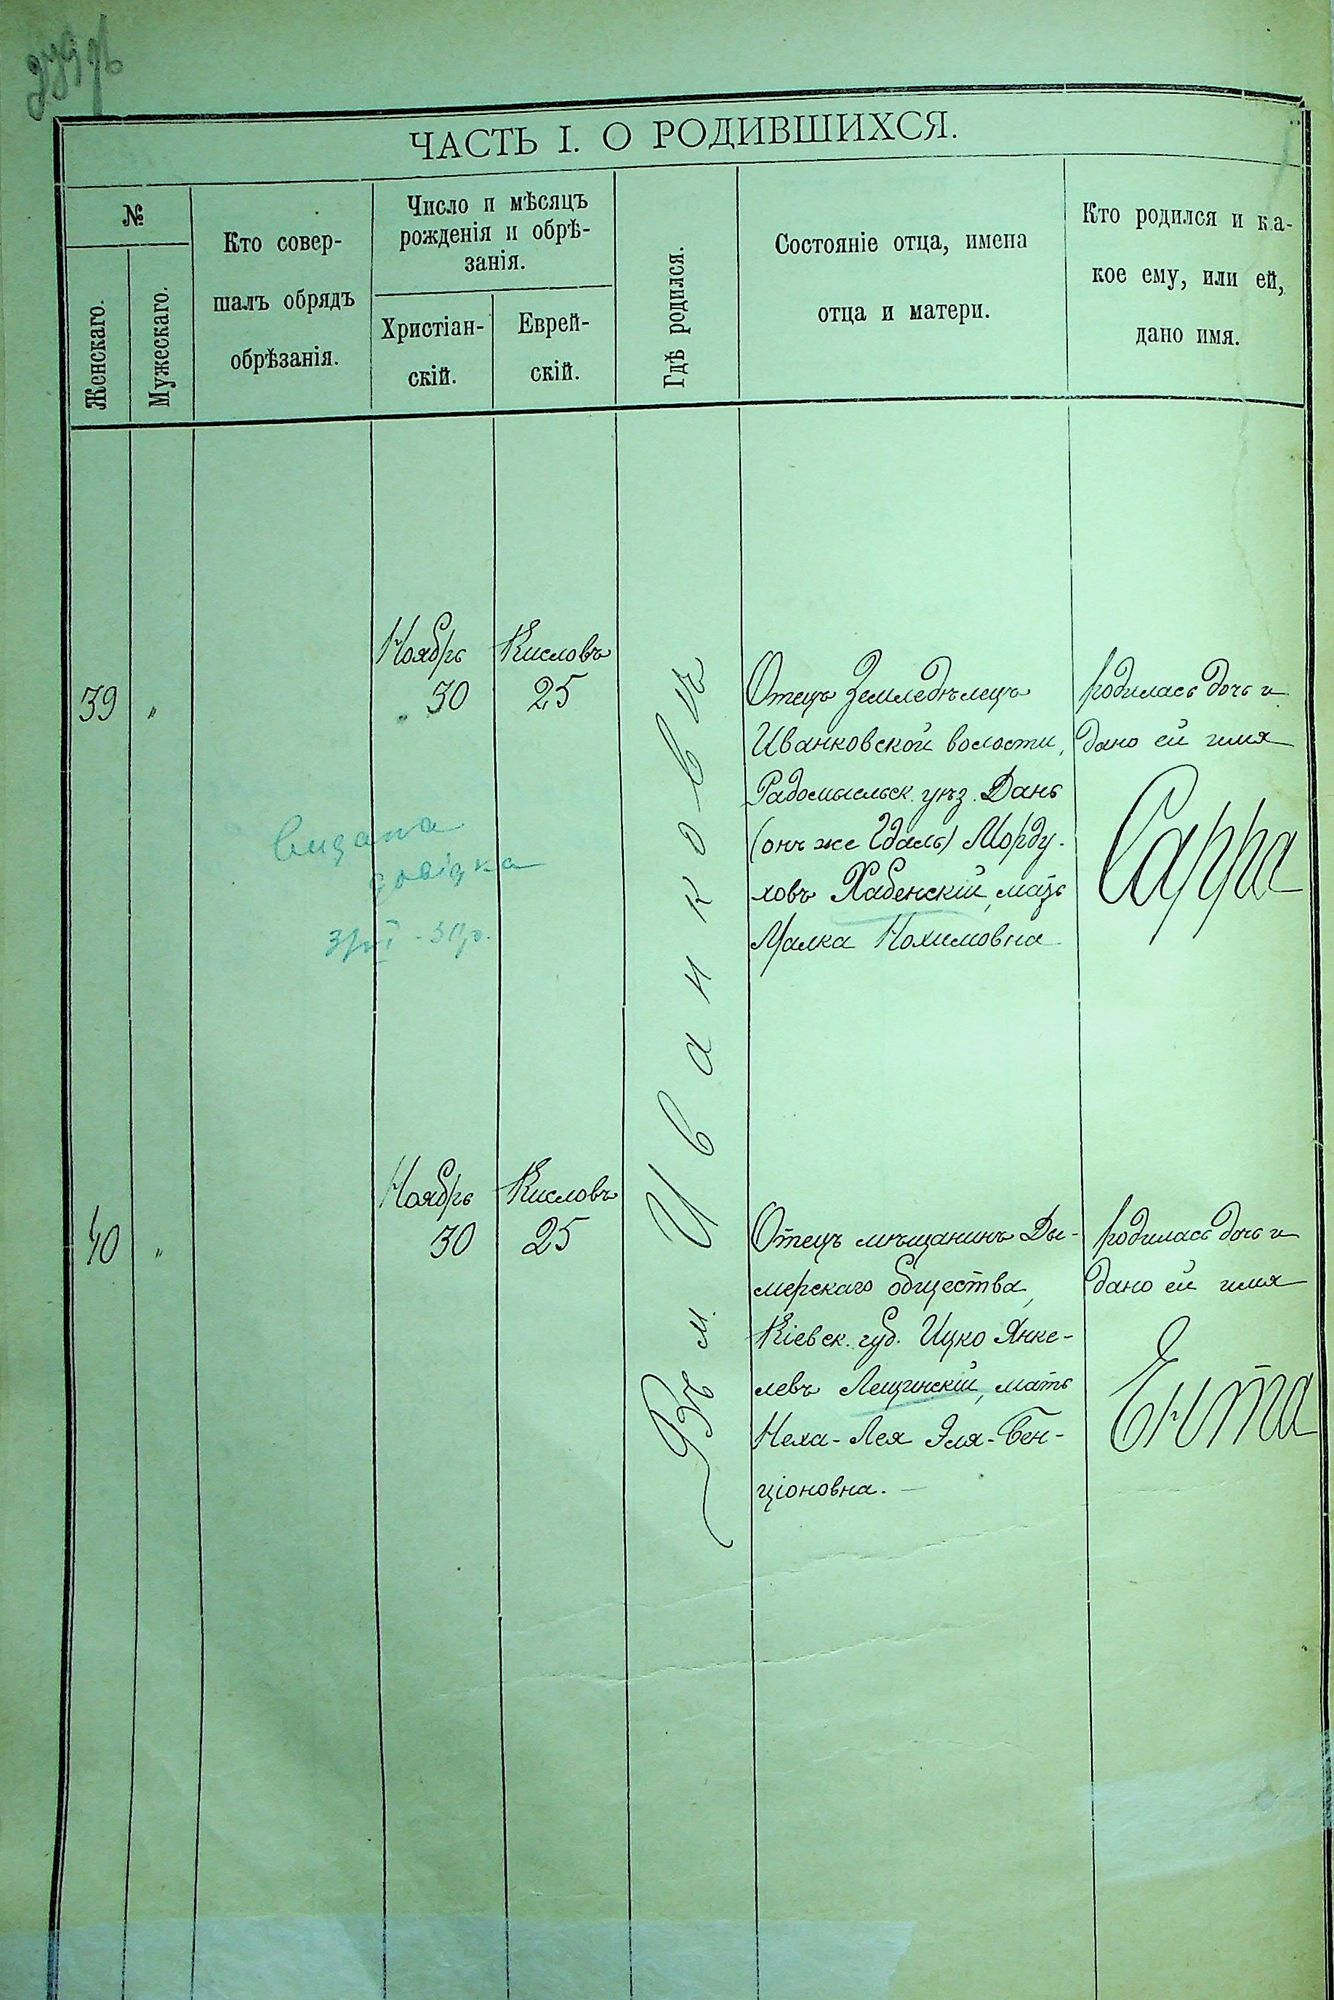 ЧАСТЬ I. О РОДИВШИХСЯ.
№
Женскаго.
Мужескаго.
Кто совер-
шалъ обрядъ
обрѣзанія.
Число и мѣсяцъ
рожденія и обрѣ-
занія.
Христіан-
скій.
Еврей-
скій.
Гдѣ родился.
Состояніе отца, имена
отца и матери.
Кто родился и ка-
кое ему, или ей,
дано имя.
39
"
Ноябрь
30
Кисловъ
25
Въ м. Иванковѣ
Отецъ Земледѣлецъ
Иванковской волости,
Радомысльск. уѣз. Дань
(онъ же Гдаль) Морду-
ховъ Хабенскій, мать
Малка Нохимовна
родилась дочь и
дано ей имя
Сарра
видана
довідка
40
"
Ноябрь
30
Кисловъ
25
Отецъ мѣщанинъ Ды-
мерскаго общества,
Кіевск. губ. Ицко Янке-
левъ Лещинскій, мать
Неха-Лея Эля-Бен-
ціоновна.
родилась дочь и
дано ей имя
Ента